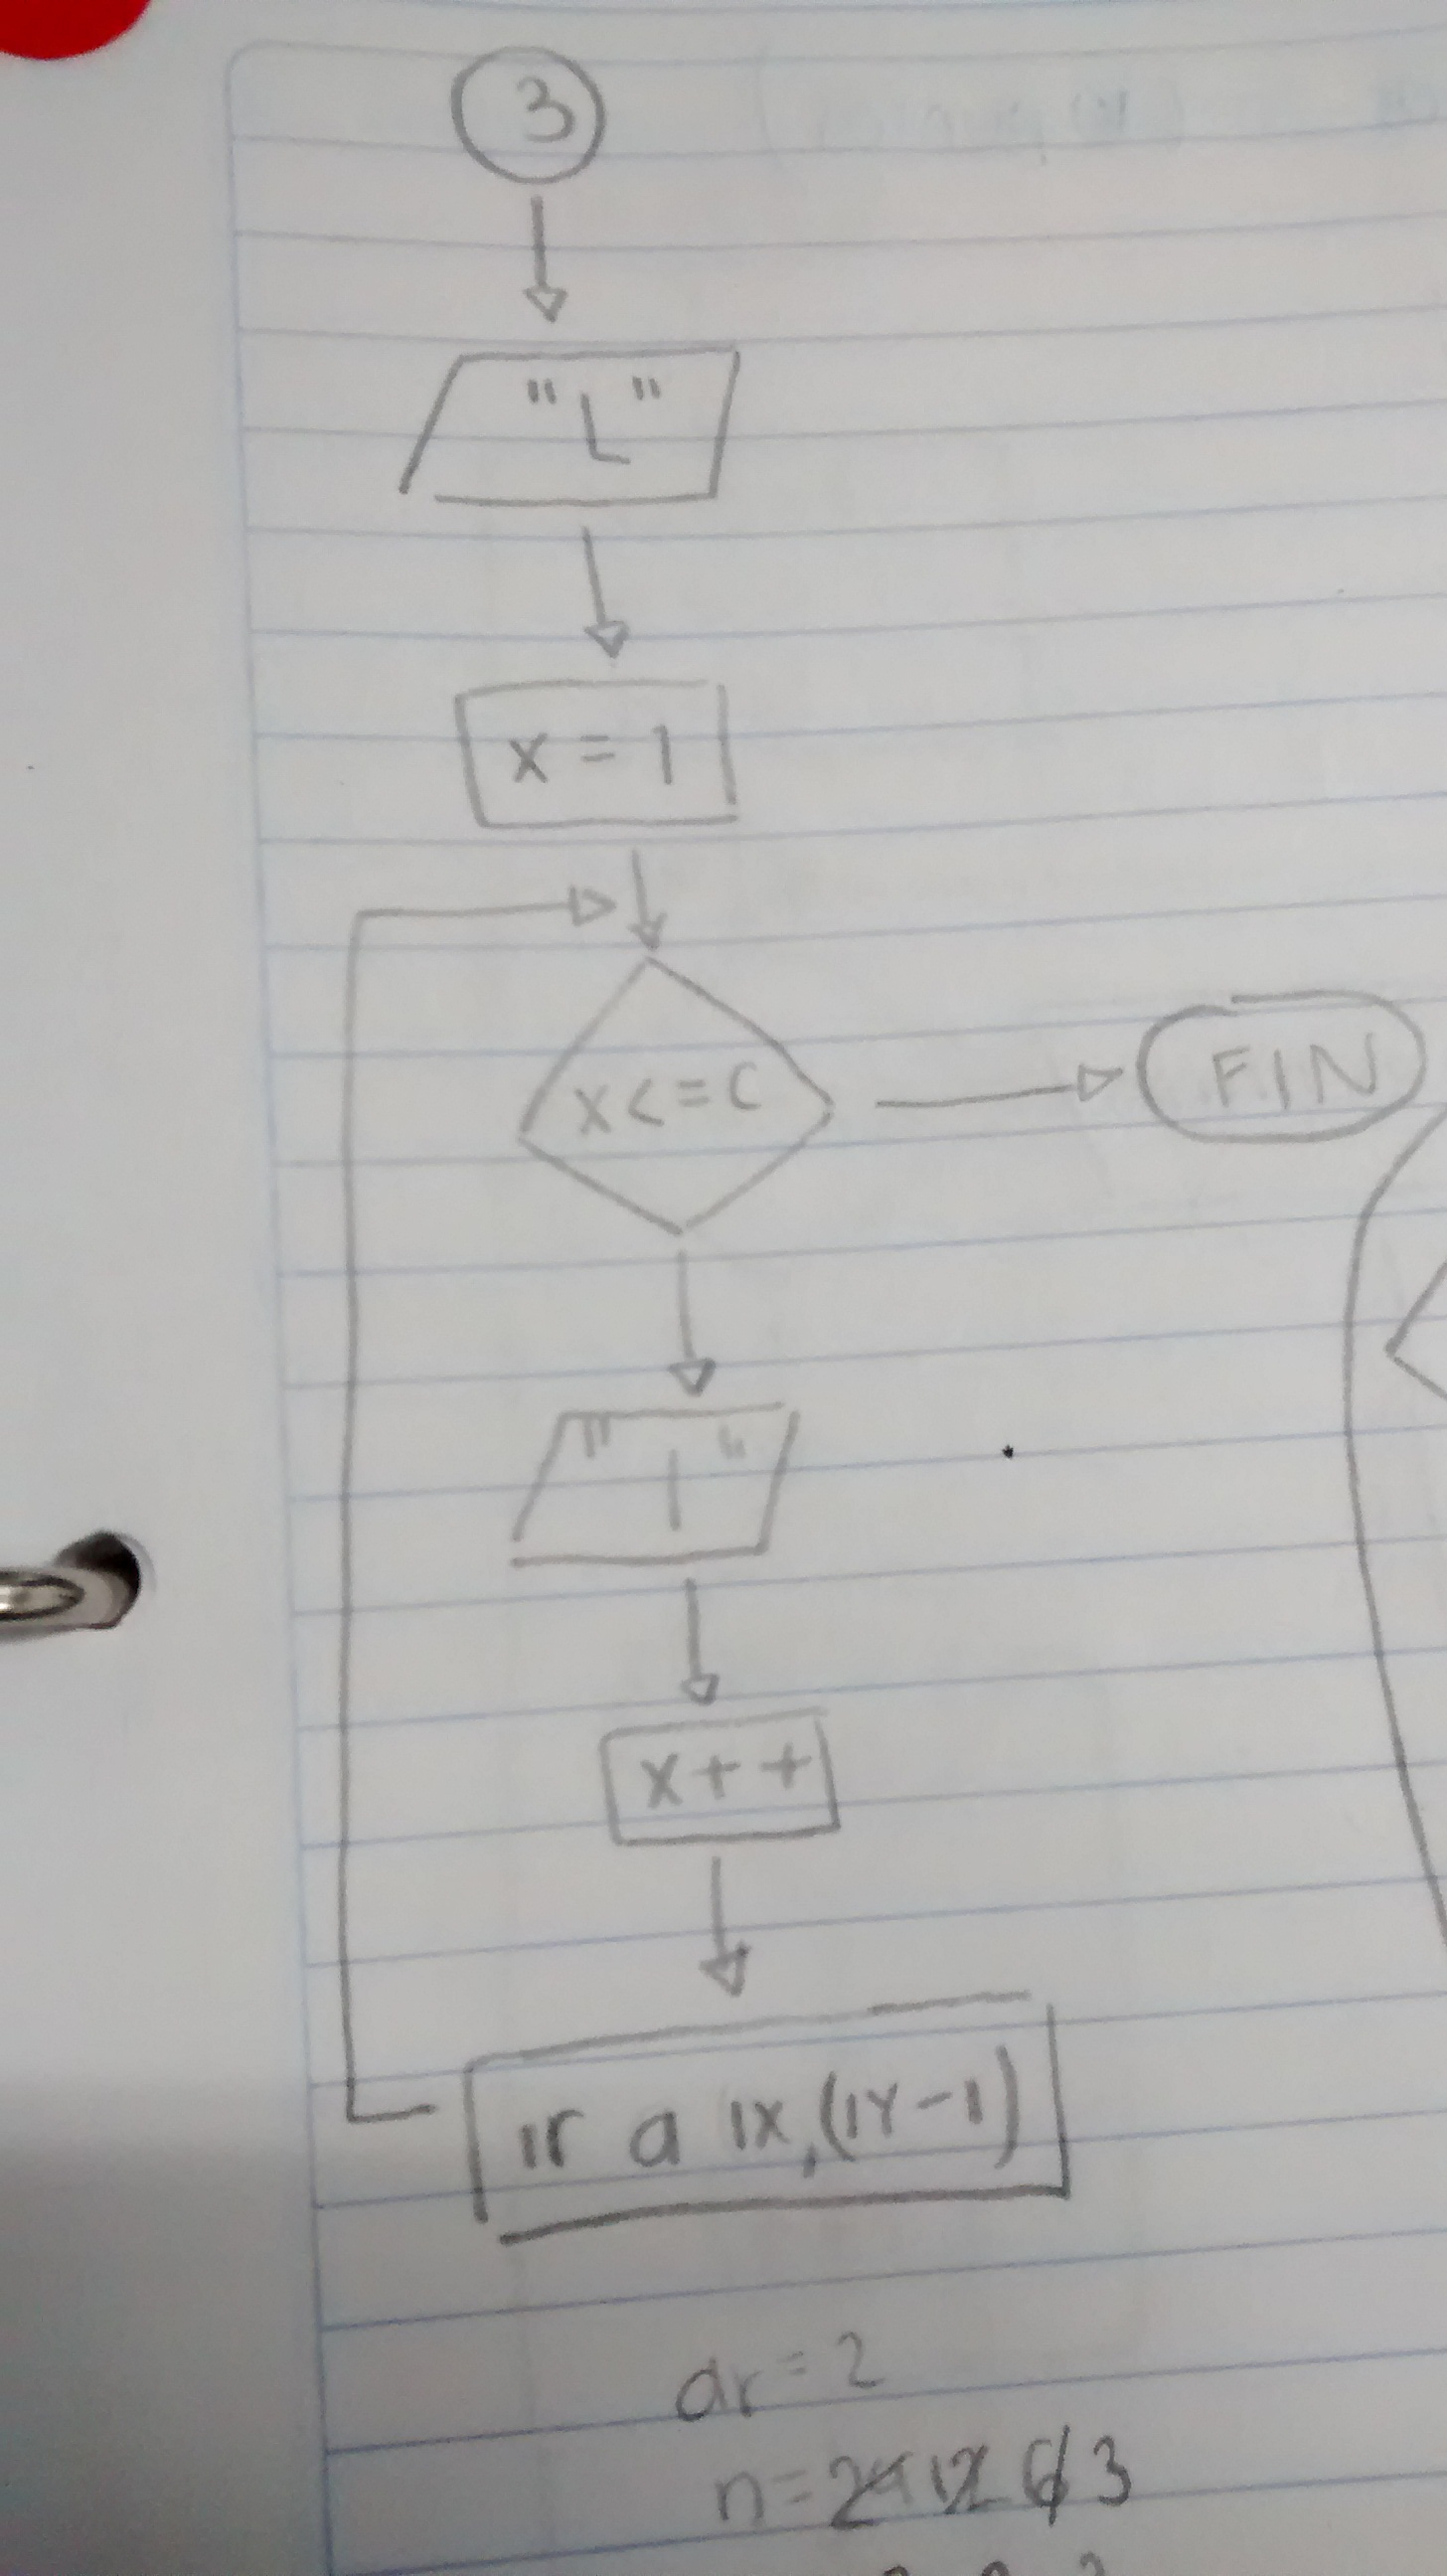 3
"L"
x = 1
x<=C
FIN
"|"
x++
ir a ix,(iy-1)
dr=2
n=24 12 6 3